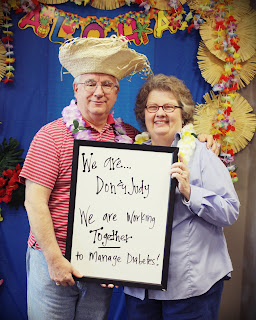 We are...
Don & Judy
We are working
Together
to Manage Diabetes!